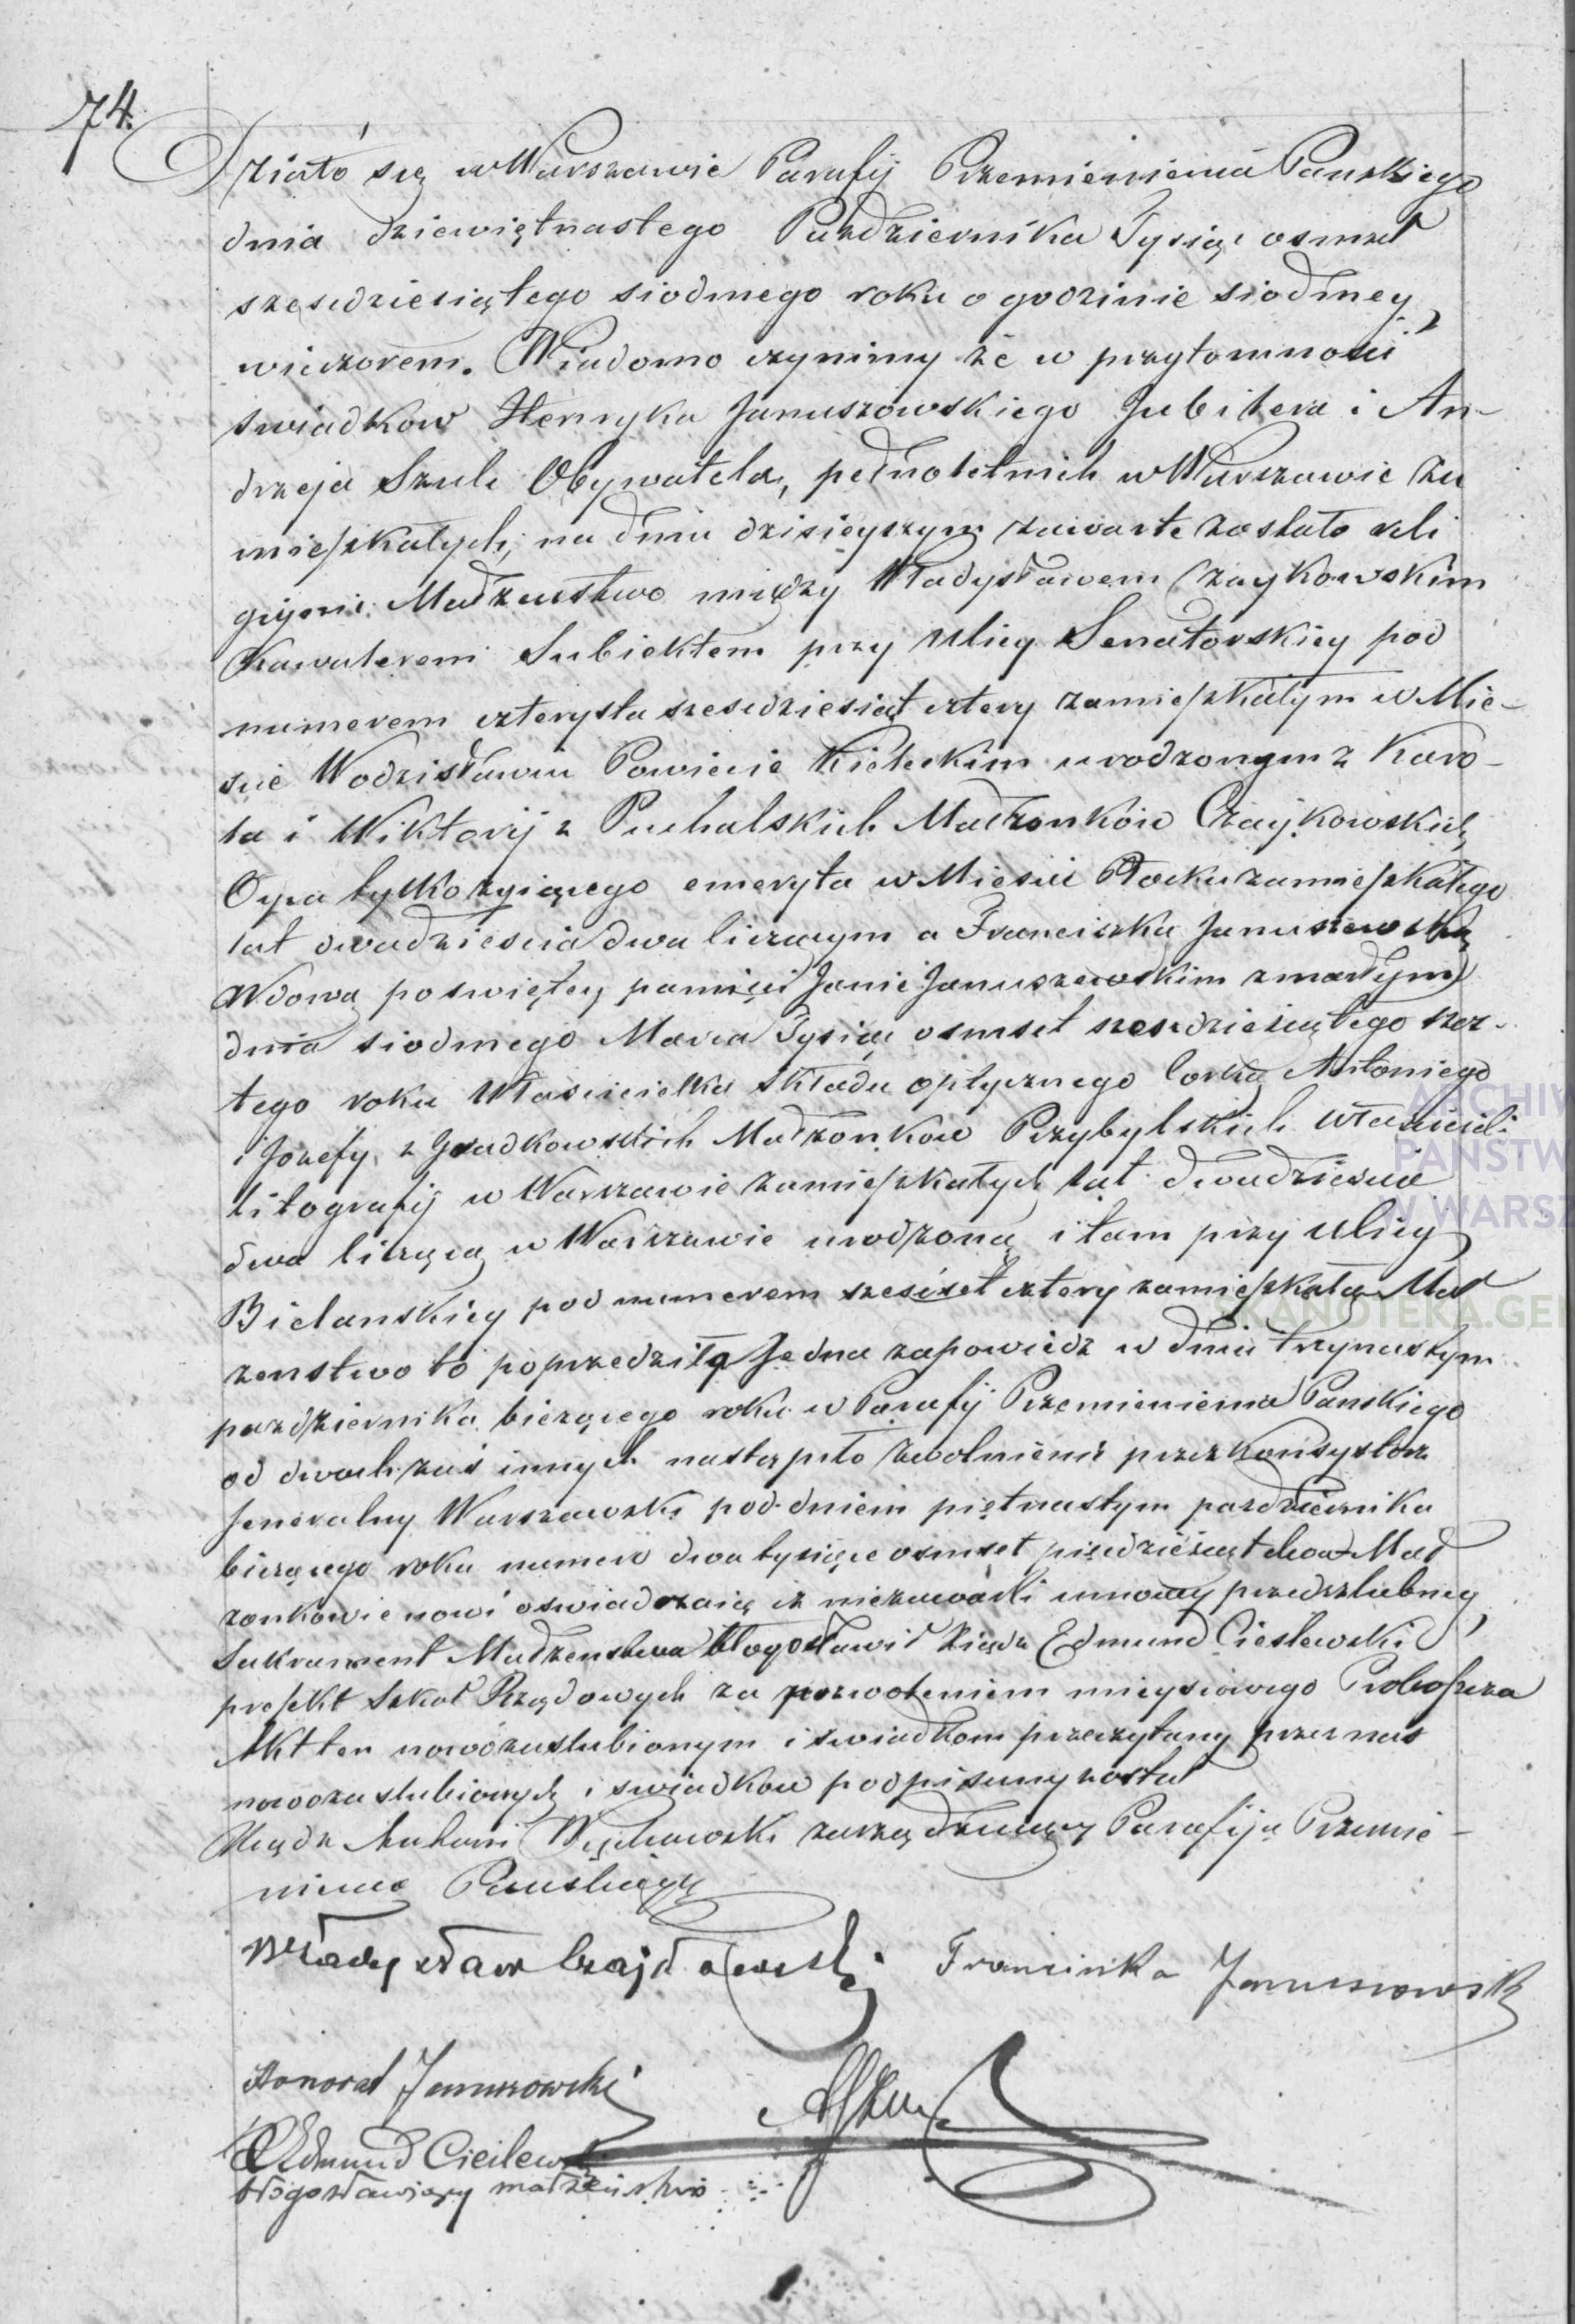 74.
Działo się w Warszawie Parafij Przemienienia Panskiego
dnia dziewiętnastego Pazdziernika Tysiąc osmset
szescdziesiątego siodmego roku o godzinie siodmey
wieczorem. Wiadomo czynimy że w przytomności
swiadkow Henryka Januszowskiego Jubilera i An-
drzeja Szulc Obywatela, pełnoletnich w Warszawie za
mieszkałych, na dniu dzisieyszym zawarte zostało reli
gijne Małżenstwo między Władysławem Czaykowskim
Kawalerem Subiektem przy Ulicy Senatorskiey pod
numerem czterysta szescdziesiąt cztery zamieszkałym w Mie-
scie Wodzisławiu Powiecie Kieleckim urodzonym z Karo-
la i Wiktorij z Puchalskich Małżonków Czaykowskich
Oyca tylko żyiącego emeryta w Miescie Płocku zamieszkałego
lat dwadziescia dwa liczącym a Franciszką Januszewską
Wdową po swiętey pamięci Janie Januszewskim zmarłym
dnia siodmego Marca Tysiąc osmset szescdziesiątego szos-
tego roku Własciecielka Składu optycznego Corką Antoniego
i Jozefy z Małżonkow Przybylskich Własciceli
litografij w Warszawie zamieszkałych lat dwadziescia
dwa liczącą w Warszawie urodzoną i tam przy Ulicy
Bielanskiey pod numerem szescset cztery zamieszkałą Mał
zenstwo to poprzedziła Jedna zapowiedz w dniu trzynastym
pazdziernika bieżącego roku w Parafij Przemienienia Panskiego
od dwoch zas innych nastąpiło zwolnienie przez Konsystorz
Jeneralny Warszawski pod dniem piętnastym pazdziernika
bieżącego roku numer dwa tysiące osmset pięcdziesiąt dwa Mał
zonkowie nowi oswiadczaią iż niezawarli umowy przedszlubney,
Sakrament Małżenstwa błogosławił Xiądz Edmund Cieslewski
prefekt Szkoł Rządowych za pozwoleniem mieyscowego Proboszcza
Akt ten nowozaslubionym i swiadkom przeczytany przez nas
nowozaslubionych i swiadkow podpisany został
Xiądz zarządzaiący Parafiją Przemie-
nienia Panskiego
Władysław Czajkowski Franciszka Januszowska
Honorat Januszowski
ASzulc
X Edmund Cieslewski
błogosławiący małżeństwo
ARCHIW
PAŃSTW
W WARSZ
SKANOTEKA.GEN